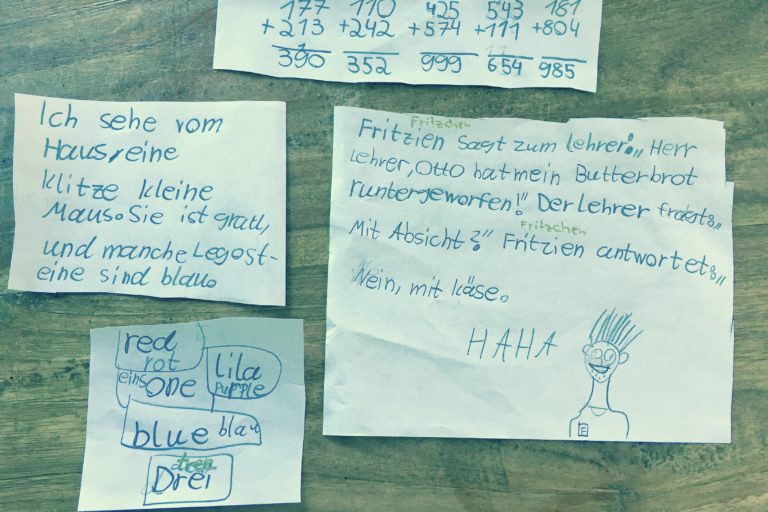 177 110 425 543 181
+213 +242 +574 +111 +804
390 352 999 654 985
Ich sehe vom
Haus, eine
klitze kleine
Maus. Sie ist grau,
und manche Legost-
eine sind blau.
Fritzchen
Fritzien sagt zum lehrer: „Herr
Lehrer, Otto hat mein Butterbrot
runtergeworfen!" Der Lehrer fragt: „
Mit Absicht?" Fritzien antwortet: „
Fritzchen
Nein, mit käse.
HAHA
E
red
rot
eins one
lila
purple
blue blau
Drei